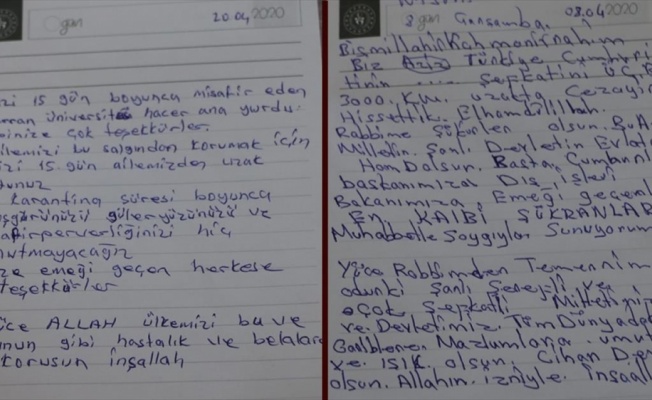 gün
20.04.2020
zi 15 gün boyunca misafir eden
eran üniversitesi hacer ana yurdu.
inize çok teşekkürler.
ilemizi bu salgından korumak için
izi 15 gün ailemizden uzak
dunuz
karantina süresi boyunca
şgörünüzü güleryüzünüzü ve
afirperverliğinizi hiç
nutmayacağız
ze emeği geçen herkese
teşekkürler
üce ALLAH ülkemizi bu ve
nun gibi hastalık ve belalarda
korusun inşallah
8 gün Çarşamba. 08.04.2020
Bismillahirrahmanirrahim
Biz Aziz Türkiye Cumhuri
tinin .... Şefkatini
3000. Km. uzakta Cezayir
Hissettik. Elhamdülillah.
Rabbime Şükürler olsun. Bu A
Milletin. Şanlı Devletin Evlat
Hamdolsun. Başta. Cumhurb
başkanımıza Dış işleri
Bakanımıza, Emeği geçenl
En KALBİ ŞÜKRANLAR
Muhabbetle Saygıyla Sunuyorum
Yüce Rabbimden Temennim
odurki Şanlı Şerefli ve
çok Şefkatli Milletimiz
ve Devletimiz Tüm Dünyada
Gariblere. Mazlumlara. umut
ve ışık olsun. Cihan De
olsun. Allahın. izniyle. inşaall